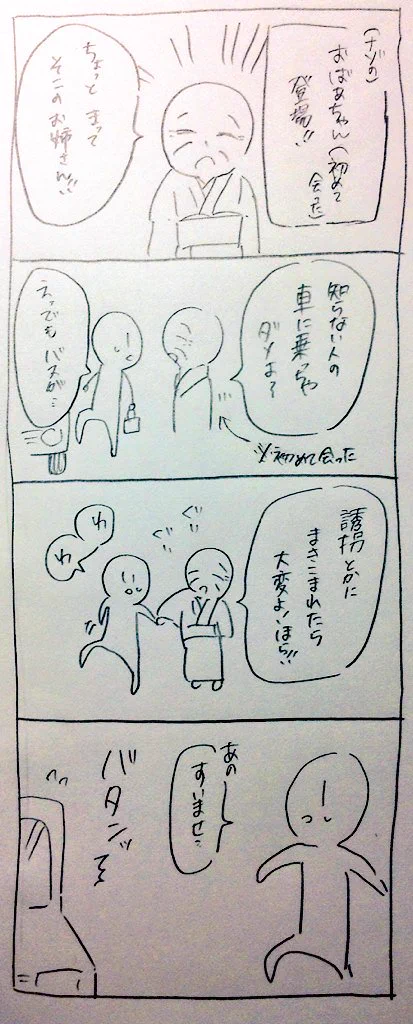 (ナゾの)
おばあちゃん(初めて
会った)
登場!!
ちょっと まって
そこのお姉さん!!
知らない人の
車に乗っちゃ
ダメよ?
※初めて会った
えっでも バスが…
誘拐とかに
まきこまれたら
大変よ!ほら!!
ぐい
ぐい
わ
わ
あの
すいませ…
バタンッ